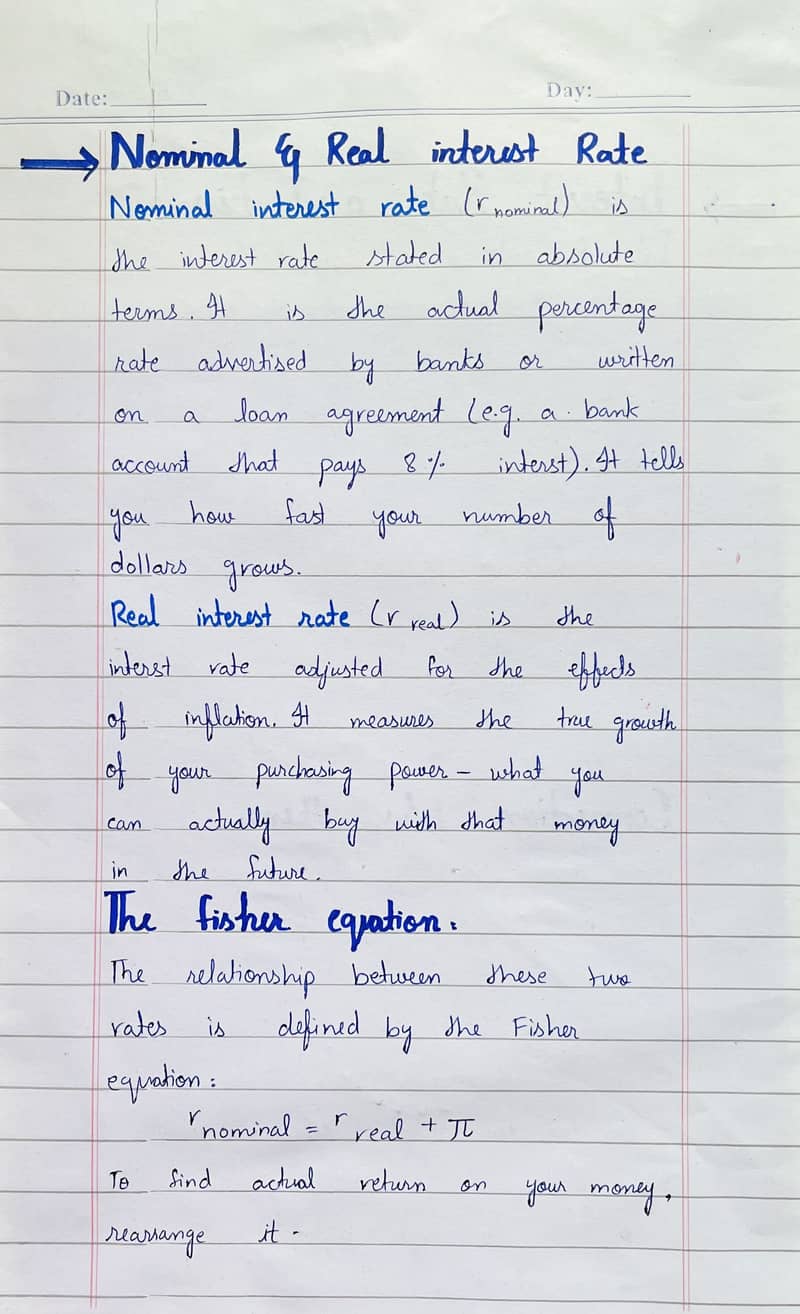 Date:
Day:
→ Nominal & Real interest Rate
Nominal interest rate (r nominal) is
the interest rate stated in absolute
terms. It is the actual percentage
rate advertised by banks or written
on a loan agreement (e.g. a bank
account that pays 8% interst). It tells
you how fast your number of
dollars grows.
Real interest rate (r real) is the
interst rate adjusted for the effects
of inflation. It measures the true growth
of your purchasing power – what you
can actually buy with that money
in the future.
The fisher equation:
The relationship between these two
rates is defined by the Fisher
equation:
r nominal = r real + π
To find actual return on your money,
rearrange it -